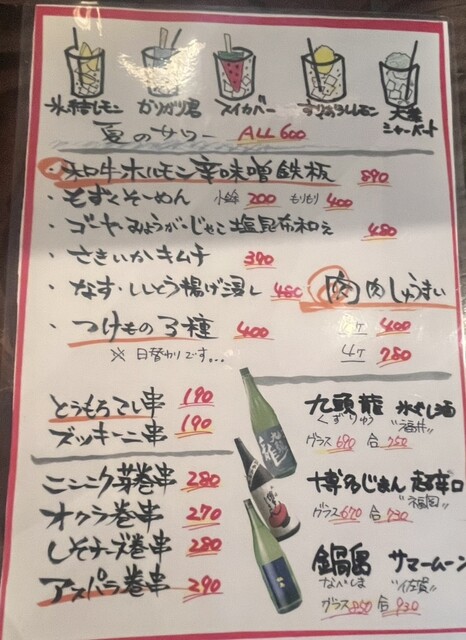 氷結レモン ガリガリ君 スイカバー すりおろしレモン 大葉シャーベット
夏のサワー ALL 600
・和牛ホルモン辛味噌鉄板 890
・もずくそーめん 小鉢 200 もりもり 400
・ゴーヤ・みょうが・じゃこ塩昆布和え 480
・さきいかキムチ 390
・なす・ししとう揚げ浸し 480
肉肉しゅうまい
2ケ 400
4ケ 780
・つけもの3種 400
※日替わりです...
とうもろこし串 190
ズッキーニ串 190
ニンニク芽巻串 280
オクラ巻串 270
しそチーズ巻串 280
アスパラ巻串 290
九頭龍 氷やし酒
くずりゅう "福井"
グラス 690 合 750
博多じまん 超辛口
"福岡"
グラス 670 合 730
鍋島 サマームーン
なべしま "佐賀"
グラス 850 合 930